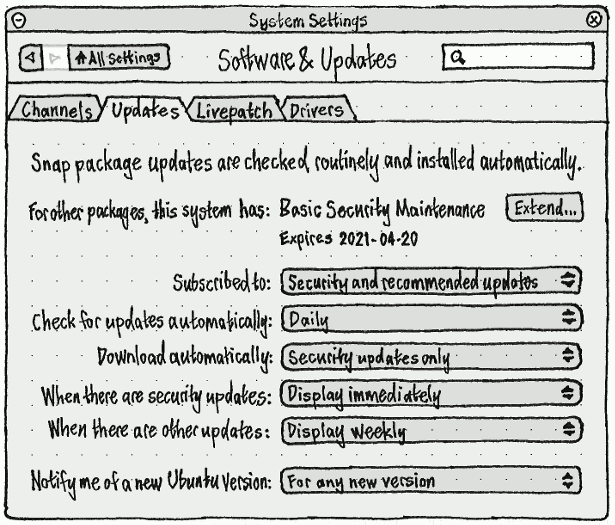 System Settings
All Settings
Software & Updates
Channels Updates Livepatch Drivers
Snap package updates are checked routinely and installed automatically.
For other packages, this system has: Basic Security Maintenance Extend...
Expires 2021-04-20
Subscribed to: Security and recommended updates
Check for updates automatically: Daily
Download automatically: Security updates only
When there are security updates: Display immediately
When there are other updates: Display weekly
Notify me of a new Ubuntu version: For any new version